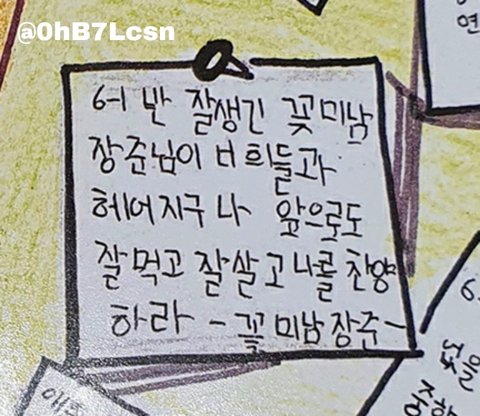 @OhB7Lcsn
연
6너 반 잘생긴 꽃미남
장준님이 너희들과
헤어지구나 앞으로도
잘먹고 잘살고 나를 찬양
하라 - 꽃미남장준 -